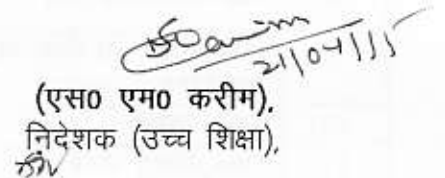 21/04/15
(एस0 एम0 करीम),
निदेशक (उच्च शिक्षा),